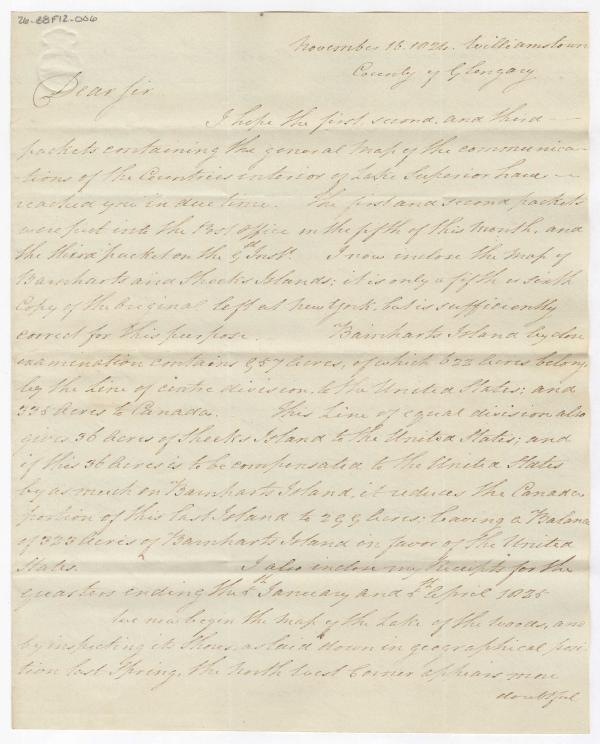 26-88F12-006
November 15. 1824. Williamstown
County of Glengary
Dear Sir
I hope the first, second, and third
packets containing the general Map of the communica-
tions of the Countries interior of Lake Superior have
reached you in due time. The first and second packets
were put into the Post Office in the fifth of this Month, and
the third packet on the 9th Inst. I now inclose the Map of
Barnharts and Sheeks Islands; it is only a fifth or sixth
Copy of the Original left at New York, but is sufficiently
correct for this purpose. Barnharts Island by close
examination contains 957 Acres, of which 622 Acres belong,
by the Line of centre division, to the United States; and
335 Acres to Canada. This Line of equal division also
gives 36 Acres of Sheeks Island to the United States; and
if this 36 Acres is to be compensated to the United States
by as much on Barnharts Island, it reduces the Canada
portion of this last Island to 299 Acres: leaving a Balance
of 323 Acres of Barnharts Island in favor of the United
States. I also inclose my Receipts for the
quarters ending the 5th January and 5th April 1825
We now begin the Map of the Lake of the Woods, and
by inspecting its Shores, as laid down in geographical posi
tion last Spring, the North West Corner appears more
doubtful